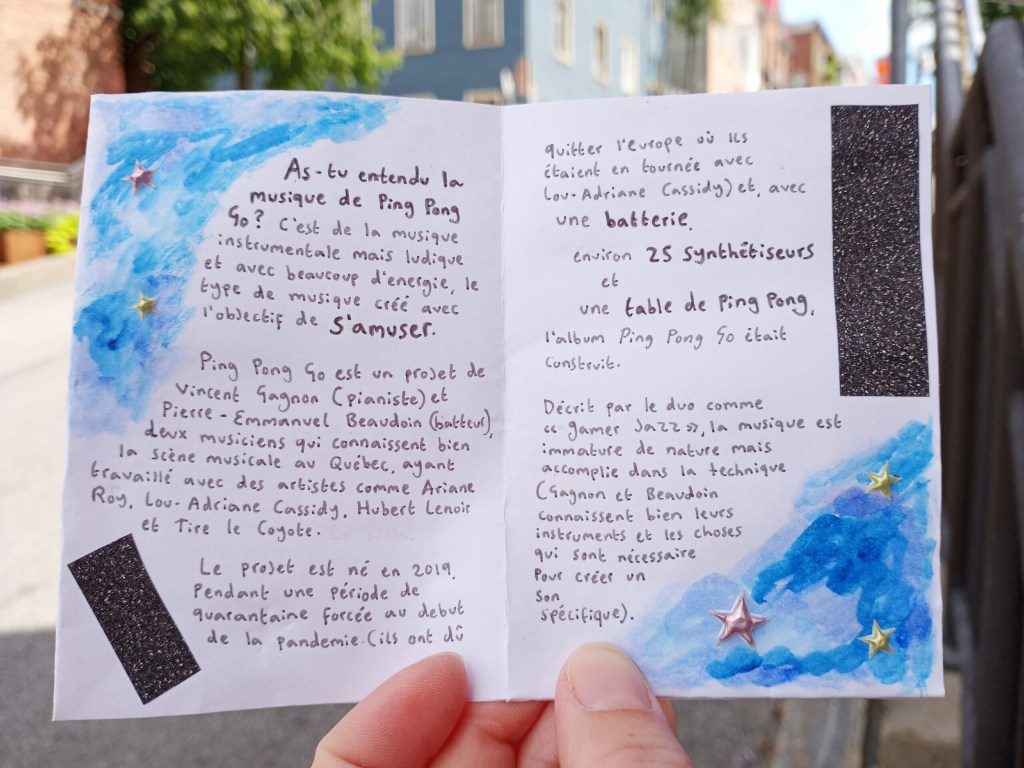 As-tu entendu la
musique de Ping Pong
Go? C'est de la musique
instrumentale mais ludique
et avec beaucoup d'energie, le
type de musique créé avec
l'objectif de s'amuser.
Ping Pong Go est un projet de
Vincent Gagnon (pianiste) et
Pierre-Emmanuel Beaudoin (batteur),
deux musiciens qui connaissent bien
la scène musicale au Québec, ayant
travaillé avec des artistes comme Ariane
Roy, Lou-Adriane Cassidy, Hubert Lenoir
et Tire le Coyote.
Le projet est né en 2019.
Pendant une période de
quarantaine forcée au debut
de la pandemie (ils ont dû
quitter l'Europe où ils
étaient en tournée avec
Lou-Adriane Cassidy) et, avec
une batterie,
environ 25 synthétiseurs
et
une table de Ping Pong,
l'album Ping Pong Go était
construit.
Décrit par le duo comme
«gamer Jazz», la musique est
immature de nature mais
accomplie dans la technique
(Gagnon et Beaudoin
connaissent bien leurs
instruments et les choses
qui sont nécessaire
pour créer un
son
spécifique).